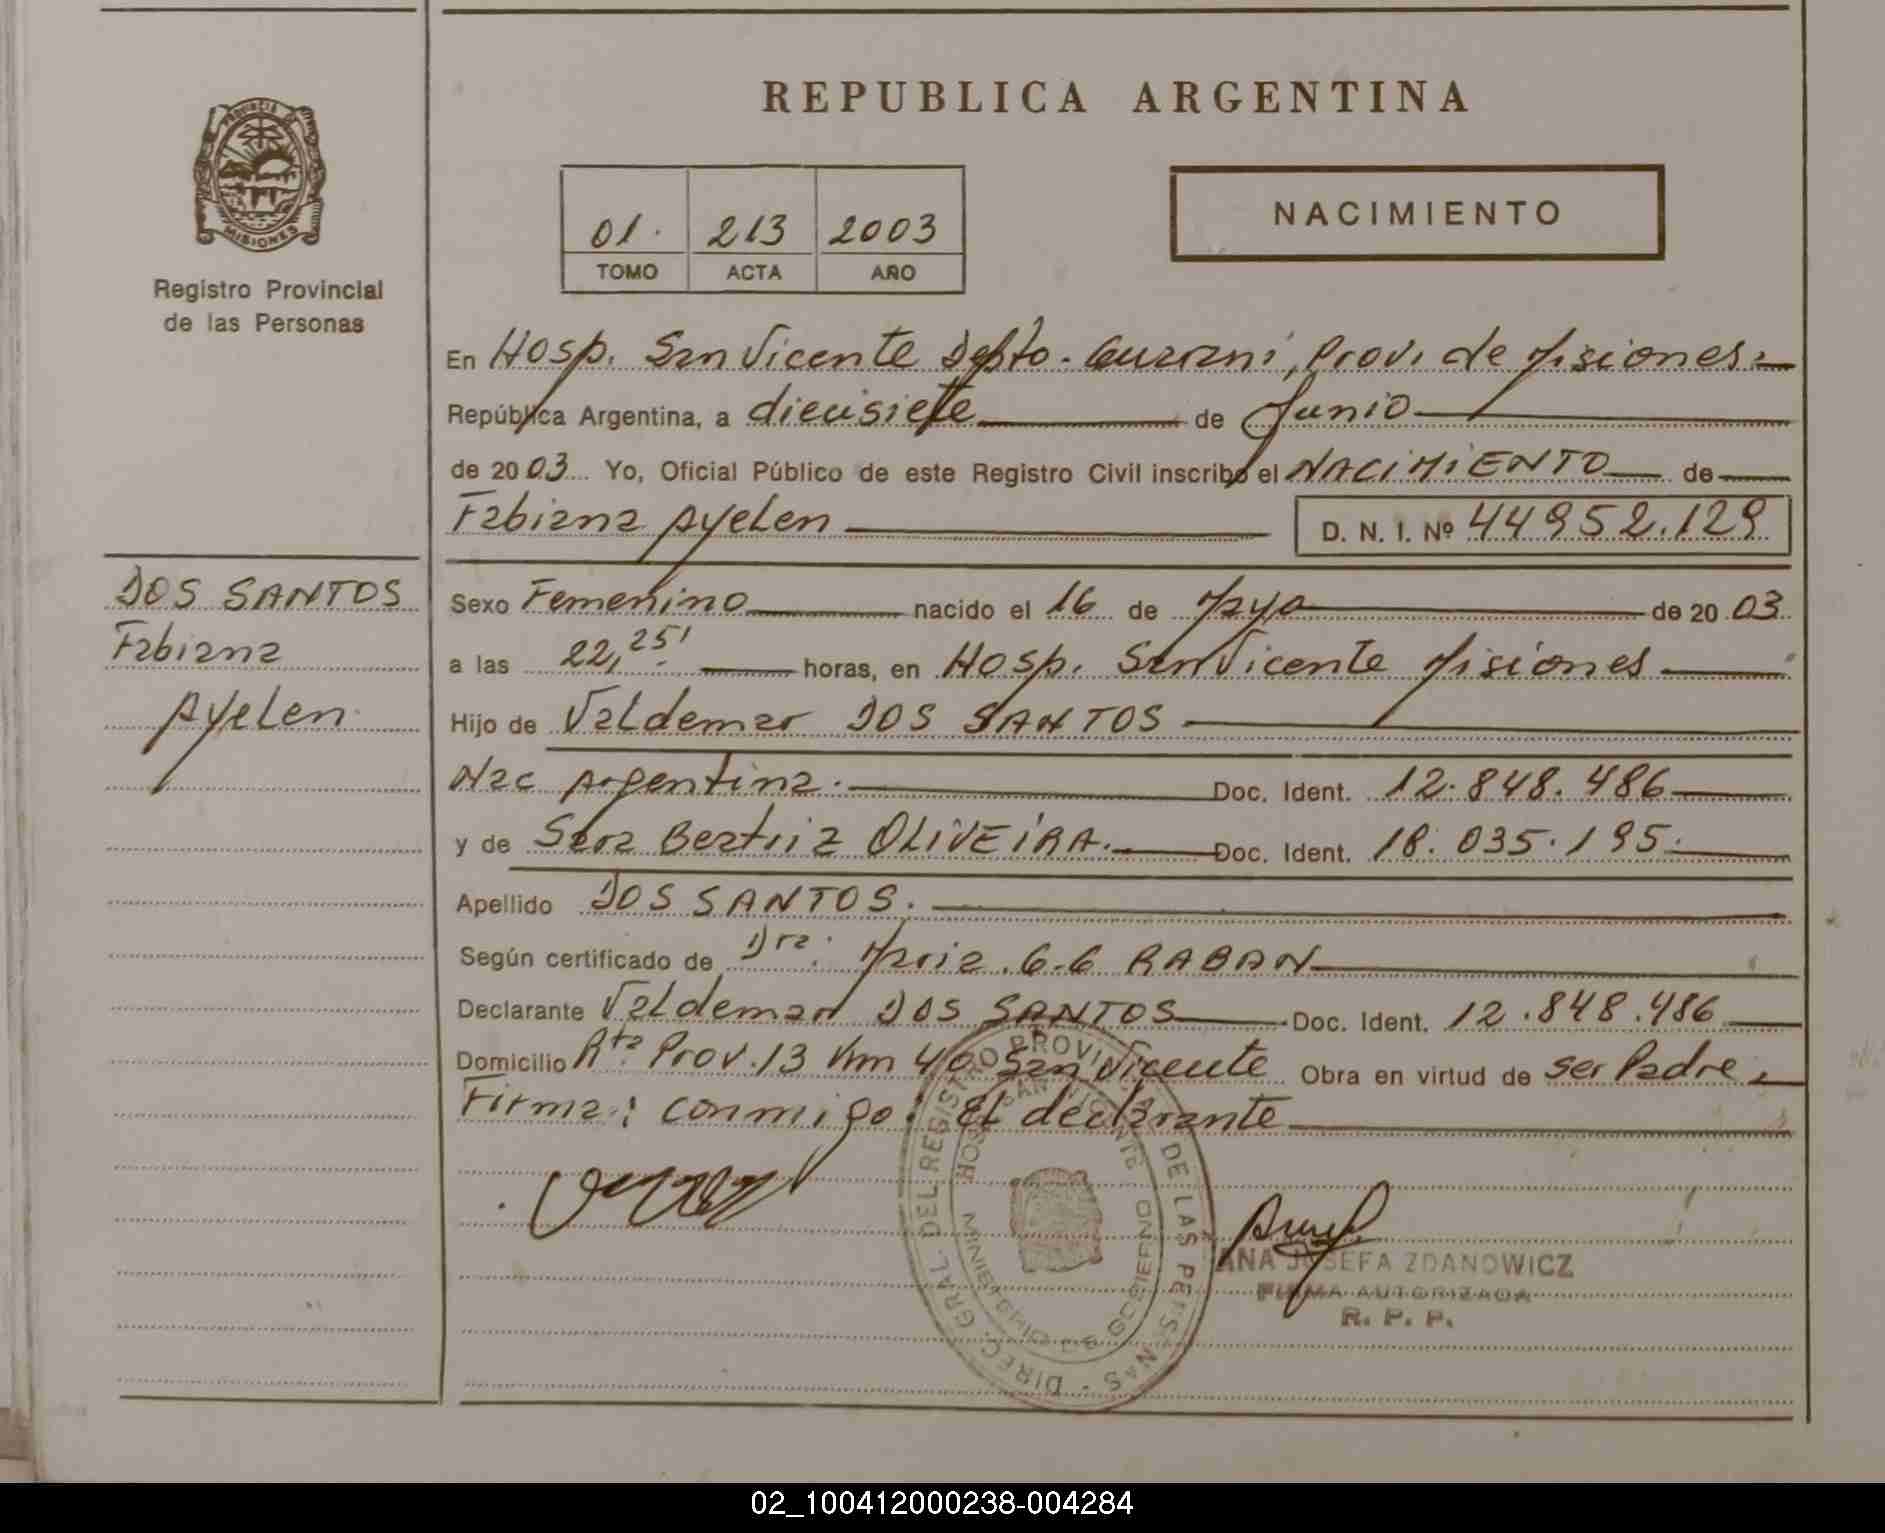 REPUBLICA ARGENTINA
PROVINCIA DE MISIONES
Registro Provincial
de las Personas
01. 213 2003
TOMO ACTA AÑO
NACIMIENTO
En Hosp. San Vicente Depto. Guarani, Prov. de Misiones.
República Argentina, a diecisiete de Junio
de 2003 Yo, Oficial Público de este Registro Civil inscribo el NACIMIENTO de
Fabiana Ayelen D. N. I. Nº 44952.129
DOS SANTOS
Fabiana
Ayelen
Sexo Femenino nacido el 16 de Mayo de 2003
a las 22,25' horas, en Hosp. San Vicente Misiones
Hijo de Valdemar DOS SANTOS
Nac Argentina. Doc. Ident. 12.848.486
y de Sara Beatriz OLIVEIRA. Doc. Ident. 18.035.195.
Apellido DOS SANTOS.
Según certificado de Dra. Maria G.G RABAN
Declarante Valdemar DOS SANTOS Doc. Ident. 12.848.486
Domicilio Rta Prov. 13 Km 40 San Vicente Obra en virtud de ser Padre.
Firma: conmigo: El declarante
DIREC. GRAL. DEL REGISTRO PROVINCIAL DE LAS PERSONAS
HOSP. SAN VICENTE
MINISTERIO DE GOBIERNO
ANA JOSEFA ZDANOWICZ
FIRMA AUTORIZADA
R. P. P.
02_100412000238-004284